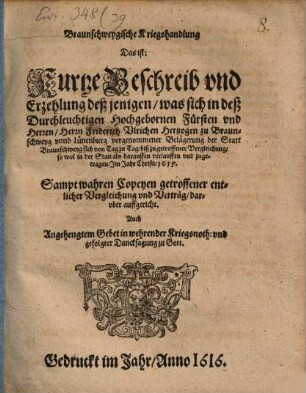 Eur. 348 (39
8.
Braunschweygische Kriegshandlung
Das ist:
Kurtze Beschreib vnd
Erzehlung deß jenigen/ was sich in deß
Durchleuchtigen Hochgebornen Fürsten vnd
Herren/ Herrn Friderich Vlrichen Hertzogen zu Braun-
schweyg vnnd Lünenburg vorgenommener Belägerung der Statt
Braunschweyg sich von Tag zu Tag/ biß zu getroffener Vergleichung/
so wol in der Statt als daraussen verlauffen vnd zuge-
tragen/ Im Jahr Christi/ 1615.
Sampt wahren Copeyen getroffener ent-
licher Vergleichung vnd Verträg/ dar-
vber auffgericht.
Auch
Angehengtem Gebet in wehrender Kriegsnoth: vnd
gefolgter Dancksagung zu Gott.
Gedruckt im Jahr/ Anno 1616.